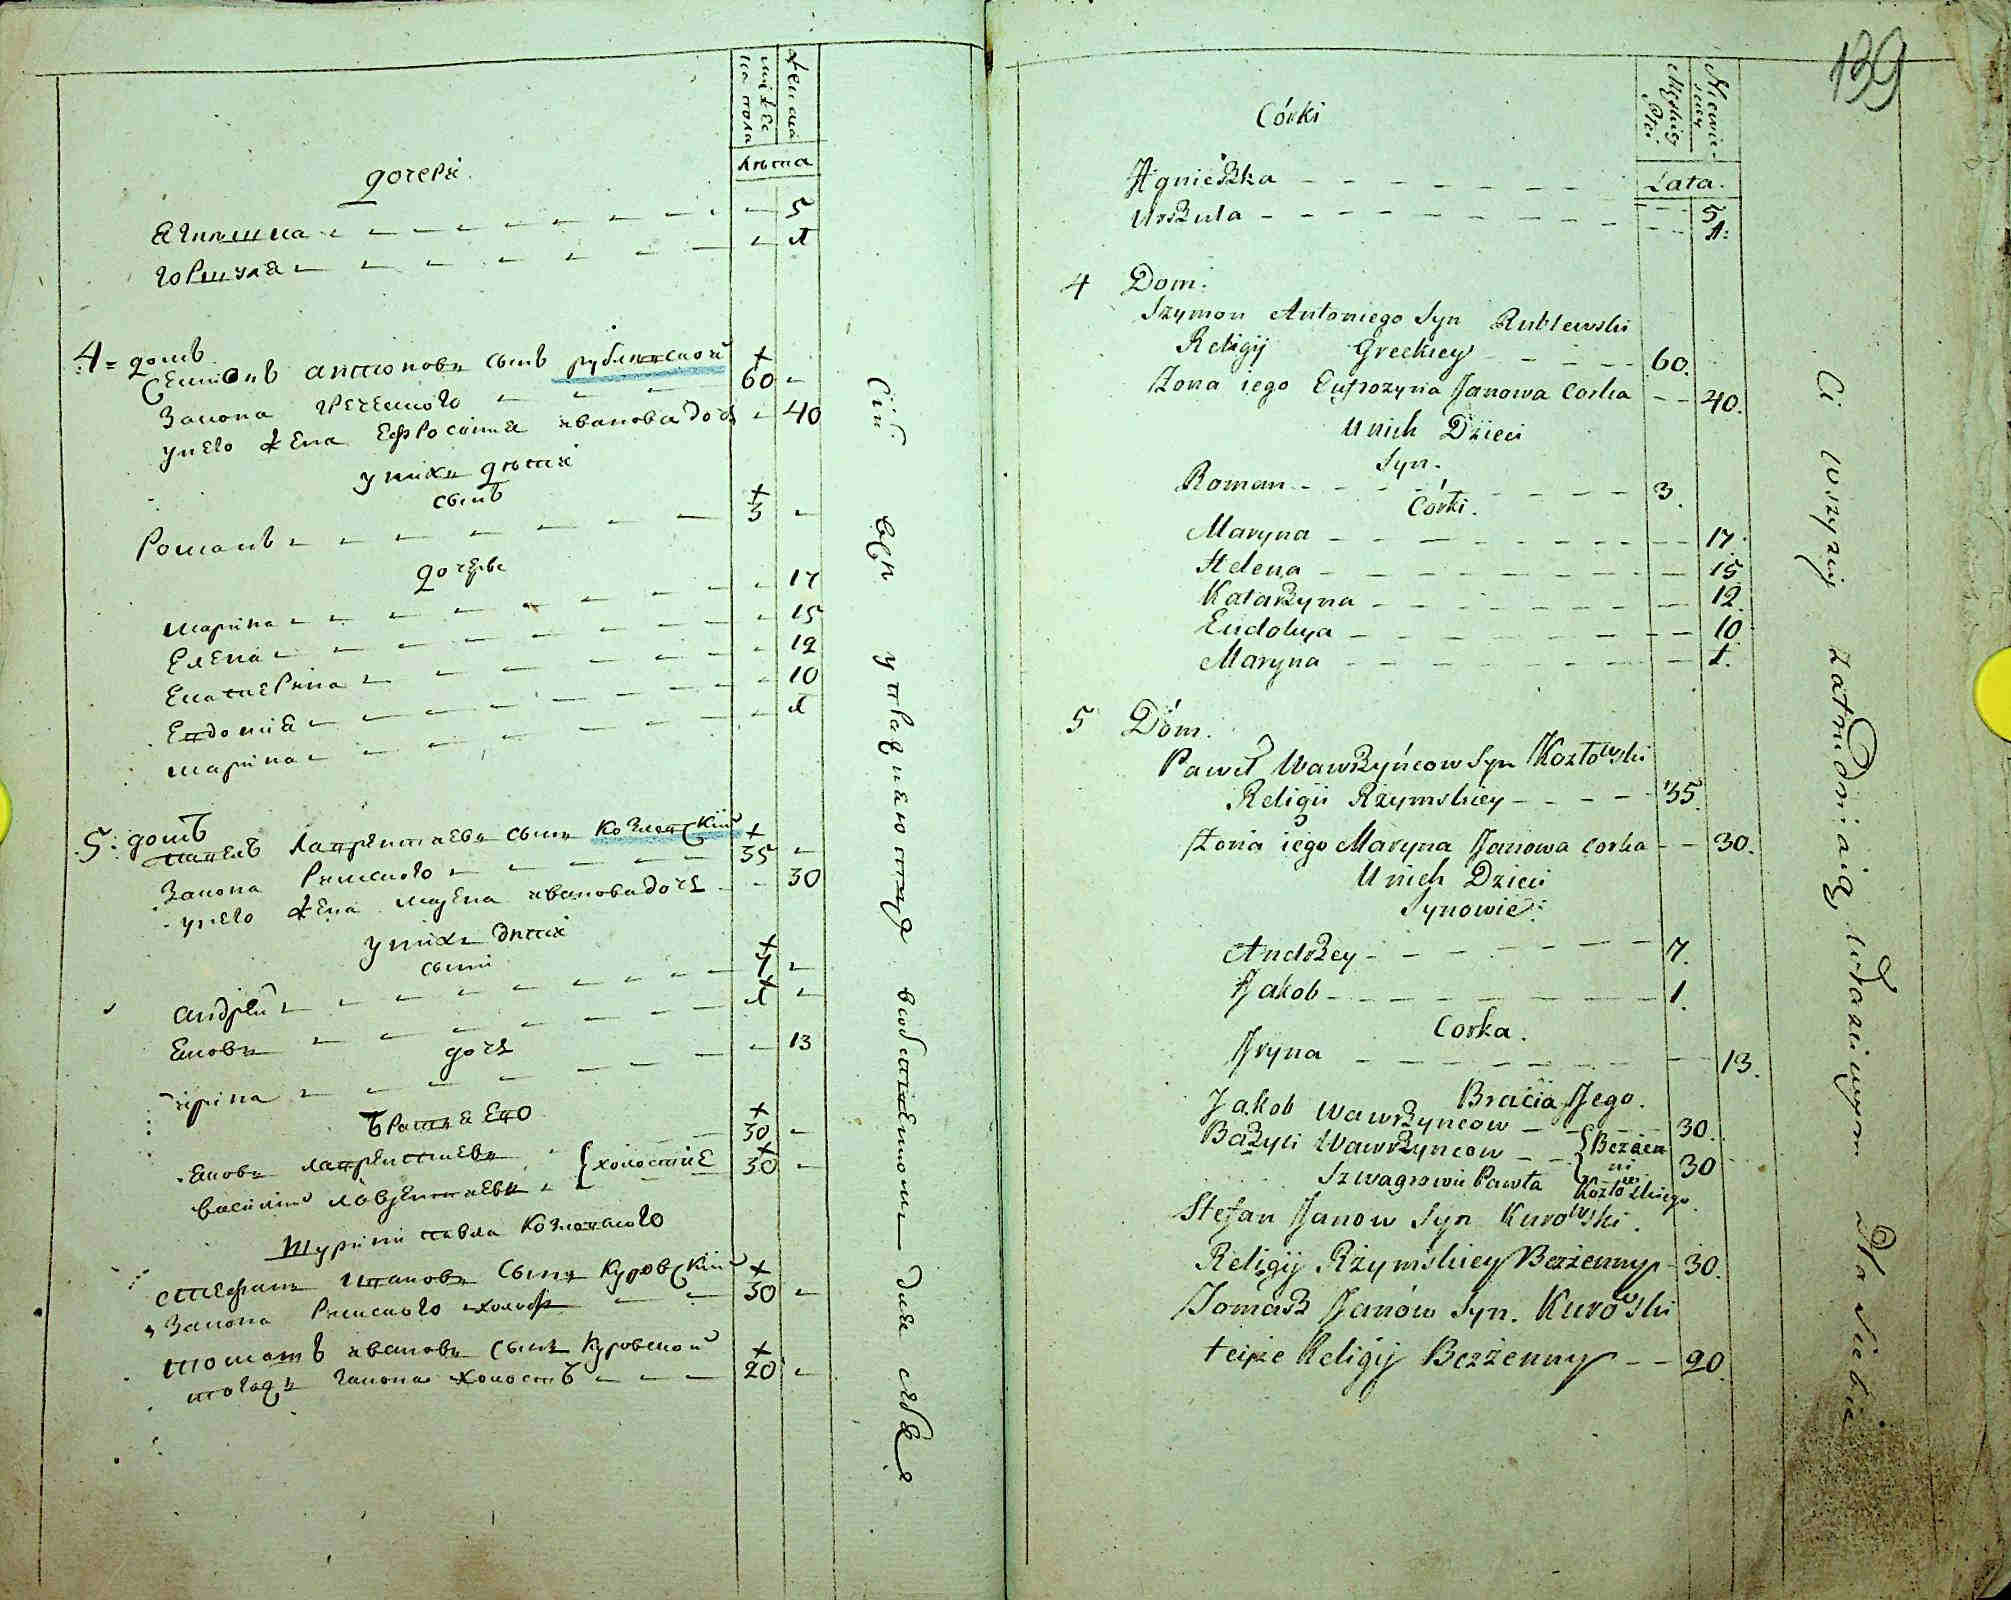 мужеска пола
женска
лѣта
дочери
Агнишка - - - - - - - 5
Горшуля - - - - - - - 1
4 = домъ
Семионъ антоновъ сынъ рублевской
Закона греческого - - - + 60 -
унего жена Ефросиния иванова дочь - 40
униxъ дѣти
сынъ
Романъ - - - - - - + 3 -
дочерѣ
марина - - - - - - - 17
Елена - - - - - - - 15
Екатерина - - - - - - 12
Евдокия - - - - - - - 10
марина - - - - - - - 1
5: домъ
павелъ лаврентиевъ сынъ Козловскій
Закона Римского - - - - + 35 -
унего жена марена иванова дочь - - 30
унихъ дѣти
сыни
андрей - - - - - - - + 7 -
Яковъ - - - - - - - + 1 -
дочь
ирина - - - - - - - 13
Братья Его
Яковъ лаврентиевъ - - + 30 -
василий лаврентиевъ - { холостие + 30 -
Шурини павла Козловского
стефанъ ивановъ сынъ Куровскій
Закона Римского холостъ - - - + 30 -
томашъ ивановъ сынъ Куровской
тогожъ закона холостъ - - - + 20 -
Сіи всѣ упражняются в собственномъ для себя
139
Męskiey Płci
Niewieściey
Lata.
Córki
Agnieszka - - - - - - - 5
Urszula - - - - - - - - 1:
4 Dom.
Szymon Antoniego Syn Rublewski
Religij Greckiey - - - - 60.
Żona iego Eufrozyna Janowa Corka - - 40.
U nich Dzieci
Syn.
Roman - - - - - - - - 3.
Córki.
Maryna - - - - - - - - 17.
Helena - - - - - - - - 15
Katarzyna - - - - - - - 12.
Eudokya - - - - - - - - 10
Maryna - - - - - - - - 1.
5 Dóm.
Paweł Wawrzyńcow Syn Kozłowski
Religii Rzymskiey - - - - 35.
Żona iego Maryna Janowa corka - - 30.
U nich Dzieci
Synowie:
Andrzey - - - - - - - 7.
Jakob - - - - - - - - 1.
Corka.
Jryna - - - - - - - - 13.
Bracia Jego.
Jakob Wawrzyncow - - - - 30.
Bazyli Wawrzyncow - - { Bezżenni 30
Szwagrowie Pawła Kozłowskiego
Stefan Janow Syn Kurowski.
Religij Rzymskiey Bezżenny - 30.
Tomasz Janów Syn. Kurowski
teyże Religij Bezżenny - - 20.
Ci wszyscy zatrudniaią właściwym dla siebie